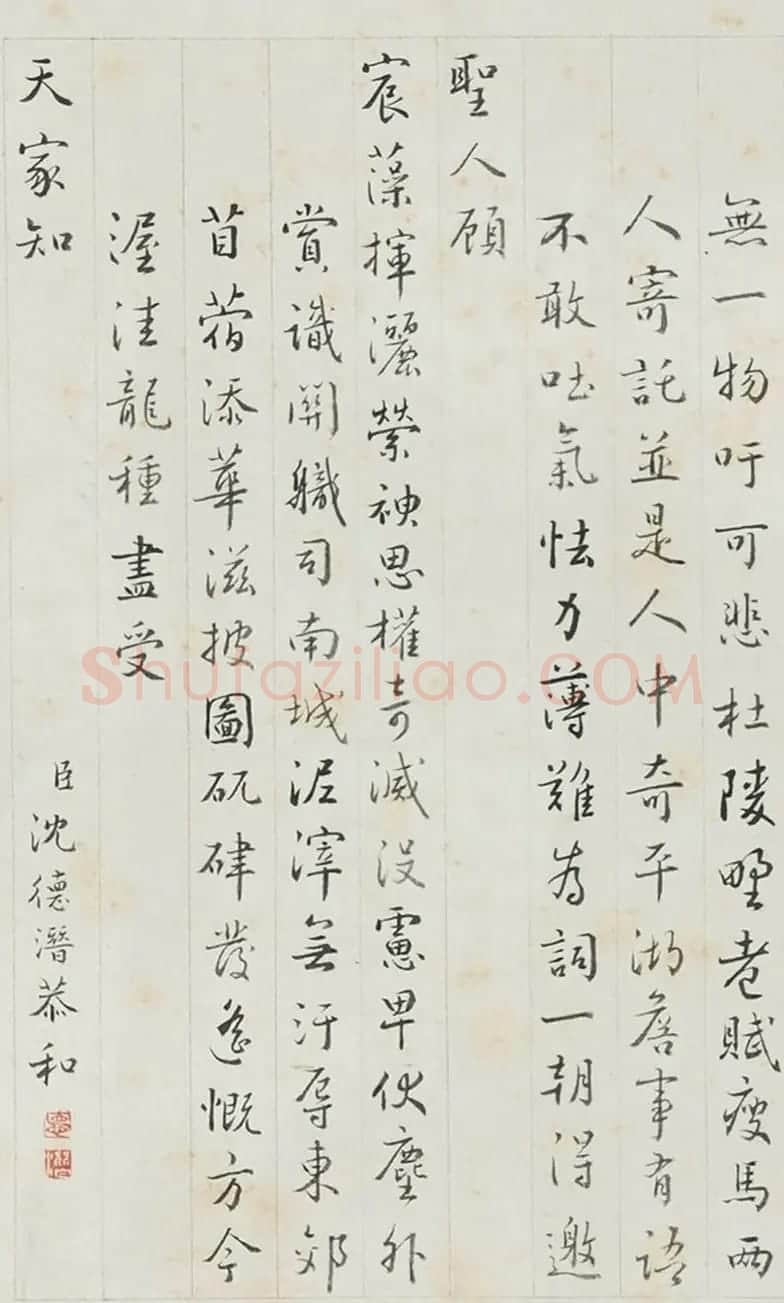 無一物吁可悲杜陵野老賦瘦馬兩
人寄託並是人中奇平湖詹事有語
不敢吐氣怯力薄難為詞一朝得邀
聖人顧
宸藻揮灑縈神思權奇滅沒慮卑伏塵外
賞識開職司南城泥滓無汙辱東郊
苜蓿添華滋披圖矹硉發遙慨方今
渥洼龍種盡受
天家知
臣沈德潛恭和
Shufaziliao.COM